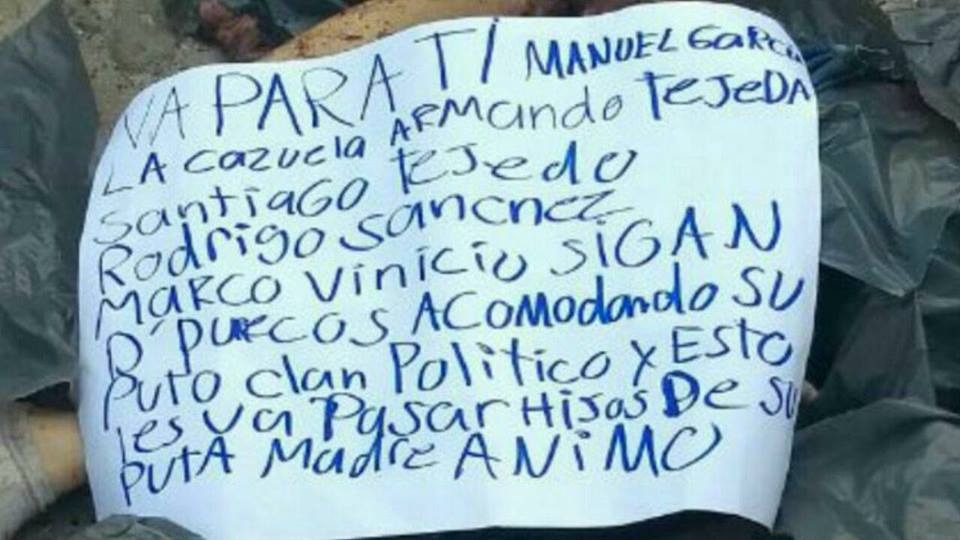 VA PARA TI MANUEL GARCIA
LA CAZUELA ARMANDO TEJEDA
SANTIAGO TEJEDO
RODRIGO SANCHEZ
MARCO VINICIO SIGAN
D' PUERCOS ACOMODANDO SU
PUTO CLAN POLITICO Y ESTO
LES VA PASAR HIJOS DE SU
PUTA MADRE ANIMO